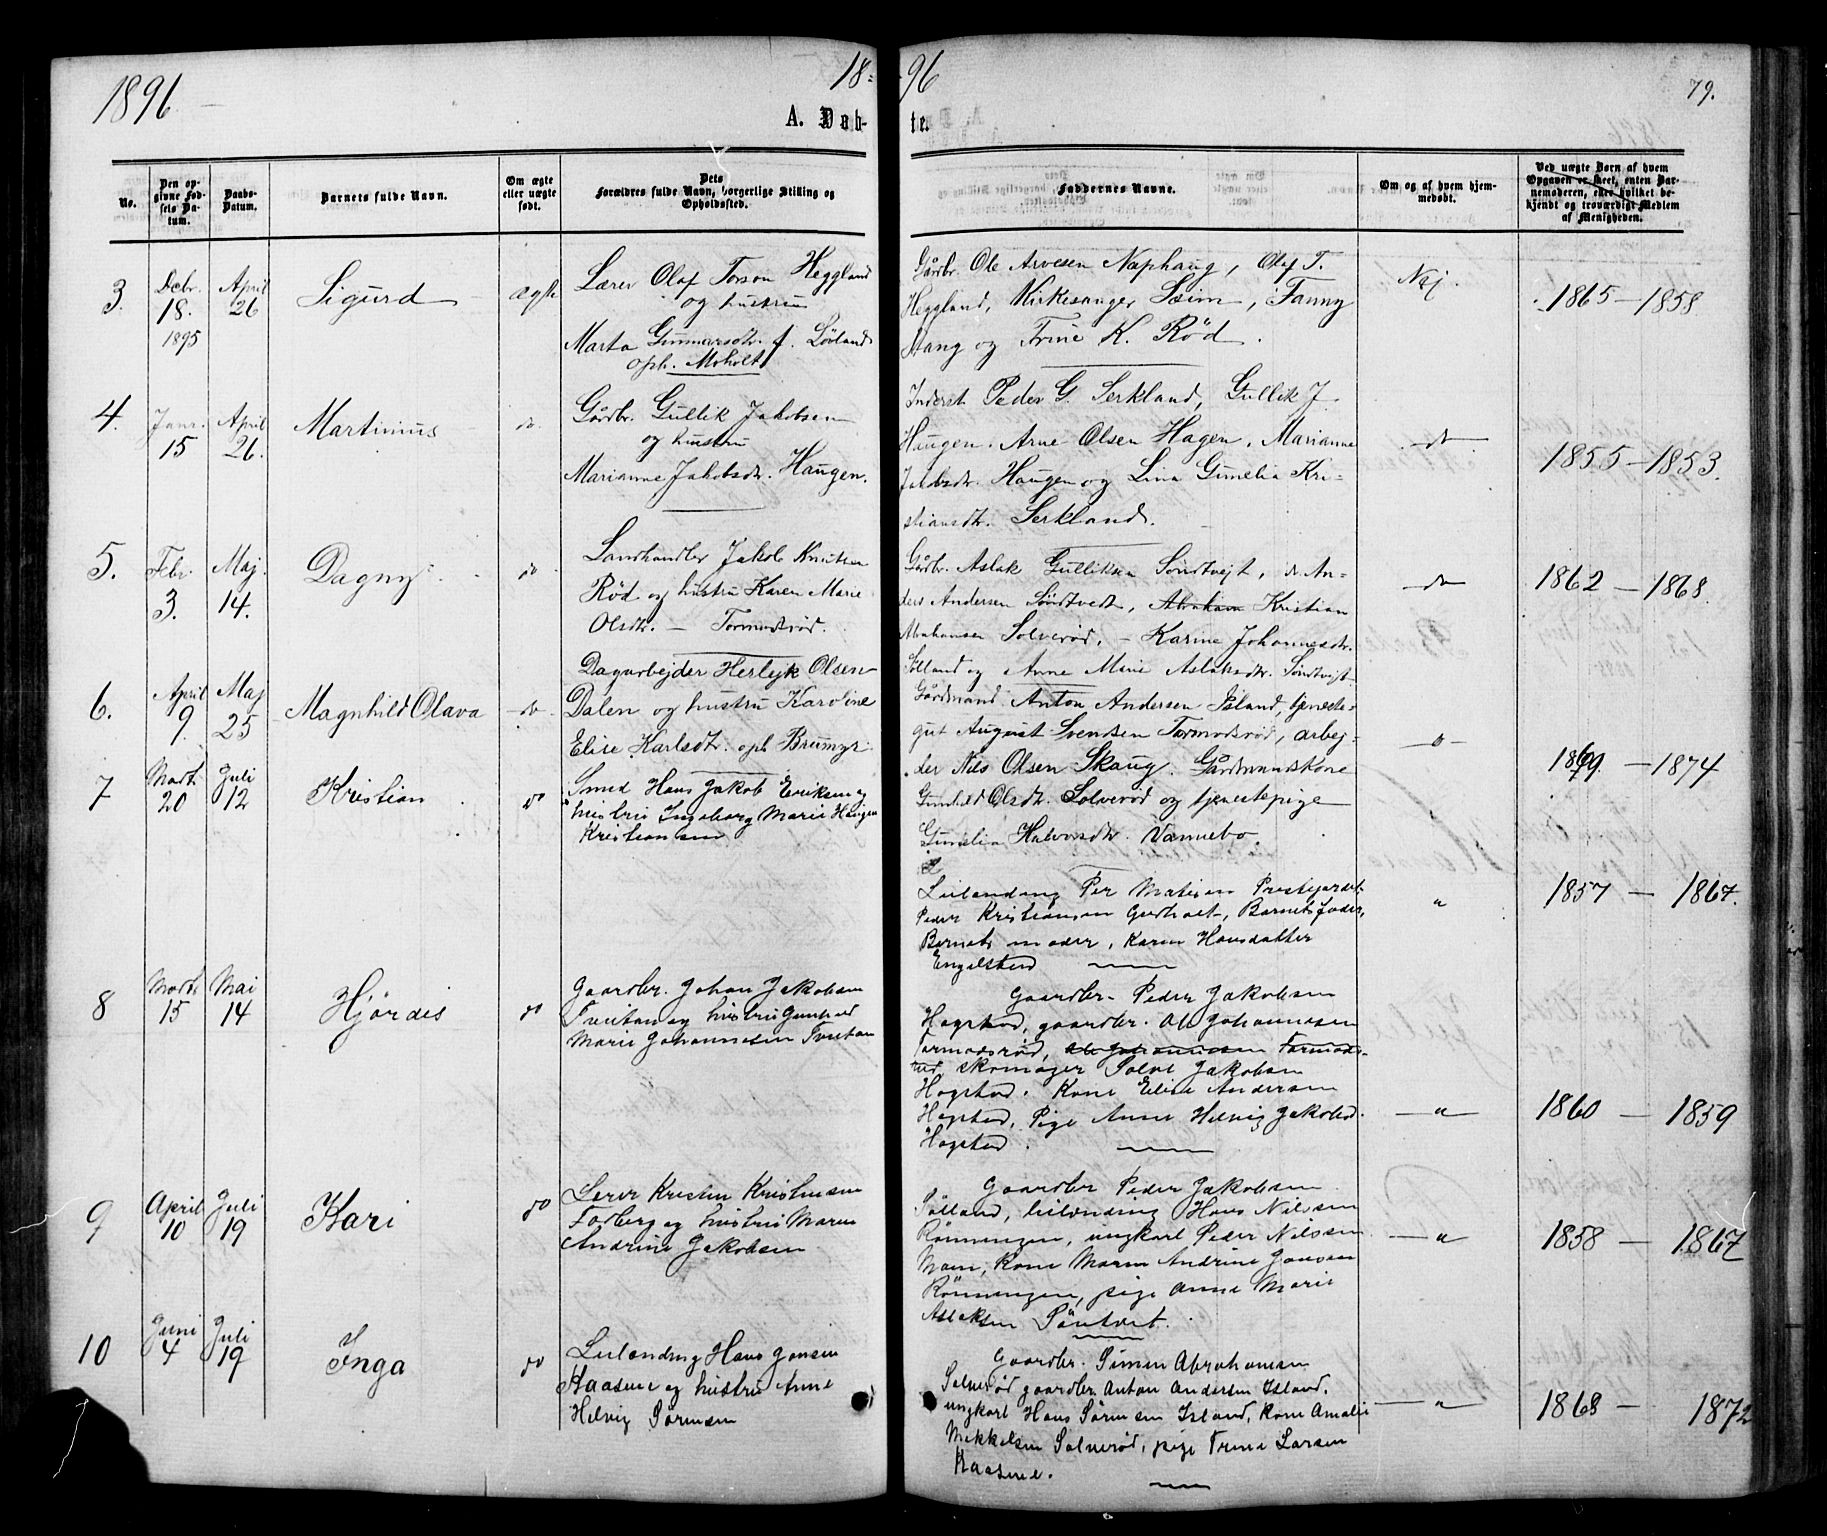 1896
18=
=96
79.
A. Dob-
te.
No.
Den op-
givne Fød-
sels Da-
tum.
Daabs-
Datum.
Barnets fulde Navn.
Om ægte
eller uægte
født.
Dets
Forældres fulde Navn, borgerlige Stilling og
Opholdssted.
Faddernes Navne.
Om og af hvem hjem-
medøbt.
Ved uægte Børn af hvem
Opgaven er skeet, enten Bar-
nemoderen, eller hvilket be-
kjendt og troværdigt Medlem
af Menigheden.
3.
Debr.
18.
1895
April
26
Sigurd
ægte
Lærer Olaf Torson Heggland
og hustru
Marta Gunnarsdtr. f. Løvland
oph. Moholt
Gårdbr. Ole Arvesen Næphaug, Olaf T.
Heggland, Kirkesanger Sæim, Fanny
Stang og Trine K. Rød.
Nej.
1865 — 1858
4.
Janr.
15
April
26.
Martinius
do.
Gårdbr. Gullik Jakobsen
og hustru
Marianne Jakobsdtr. Haugen.
Inderst Peder G. Serkland, Gullik J.
Haugen, Arne Olsen Hagen, Marianne
Jakobsdtr. Haugen og Lina Gunelia Kri-
stiansdtr. Serkland.
do
1855 — 1853.
5.
Febr.
3.
Maj.
14.
Dagny
do
Landhandler Jakob Knutsen
Rød og hustru Karen Marie
Olsdtr. — Tormodsrød.
Gårdbr. Aslak Gulliksen Søndtvejt, do An-
ders Andersen Søndtvedt, Abraham Kristian
Abrahamsen Solverød, — Karine Johannesdtr.
Sølland og Anne Marie Aslaksdtr. Søndtvejt
do
1862 — 1868.
6.
April
9.
Maj
25
Magnhild Olava
do
Dagarbejder Herlejk Olsen
Dalen og hustru Karoline
Elise Karlsdtr. oph Brumyr
Gårdmand Anton Andersen Island, tjeneste-
gut August Svendsen Tormodsrød, arbej-
der Nils Olsen Skaug. Gårdmandskone
Gunhild Olsdtr. Solverød og tjenestepige
Gunelia Halvorsdtr. Vannebo.
o
1869. — 1874
7
Marts
20
Juli
12
Kristian
do
Smed Hans Jakob Eriksen og
hustru Ingeborg Marie Haugen
Kristiansen
Leilending Per Matisen Prestejordet
Peder Kristiansen Gurholt, Barnets fader,
Barnets moder, Karen Hansdatter
Engelstad
"
1857 — 1867.
8
Marts
15
Mai
14
Hjördis
do
Gaardbr. Johan Jakobsen
Tveitan og hustru Gunhild
Marie Johannesen Tveitan
Gaardbr. Peder Jakobsen
Hogstad, gaardbr. Ole Johannesen
Tormodsrød, Ole Johannesen Tormods-
rød, skomager Solve Jakobsen
Hogstad. Kone Elise Andersen
Hogstad, Pige Anne Helvig Jakobsd.
Hogstad.
— " —
1860 — 1859
9
April
10
Juli
19
Kari
do
Lærer Kristen Kristensen
Forberg og hustru Maren
Andrine Jakobsen
Gaardbr Peder Jakobsen
Sölland, leilending Hans Nilssen
Rönningen, ungkarl Peder Nilssen
Moen, Kone Maren Andrine Jonsen
Rönningen, pige Anne Marie
Aslaksen Söntvet.
— " —
1858 — 1867
10
Juni
4
Juli
19
Inga
do
Leilending Hans Jonsen
Kaasene og hustru Anne
Helvig Sörensen
Gaardbr. Simen Abrahamsen
Solverød gaardbr. Anton Andersen Island,
ungkarl Hans Sörensen Island, kone Amalie
Mekkelsen Solverød, pige Trine Larsen
Kaasene.
— " —
1868 — 1872